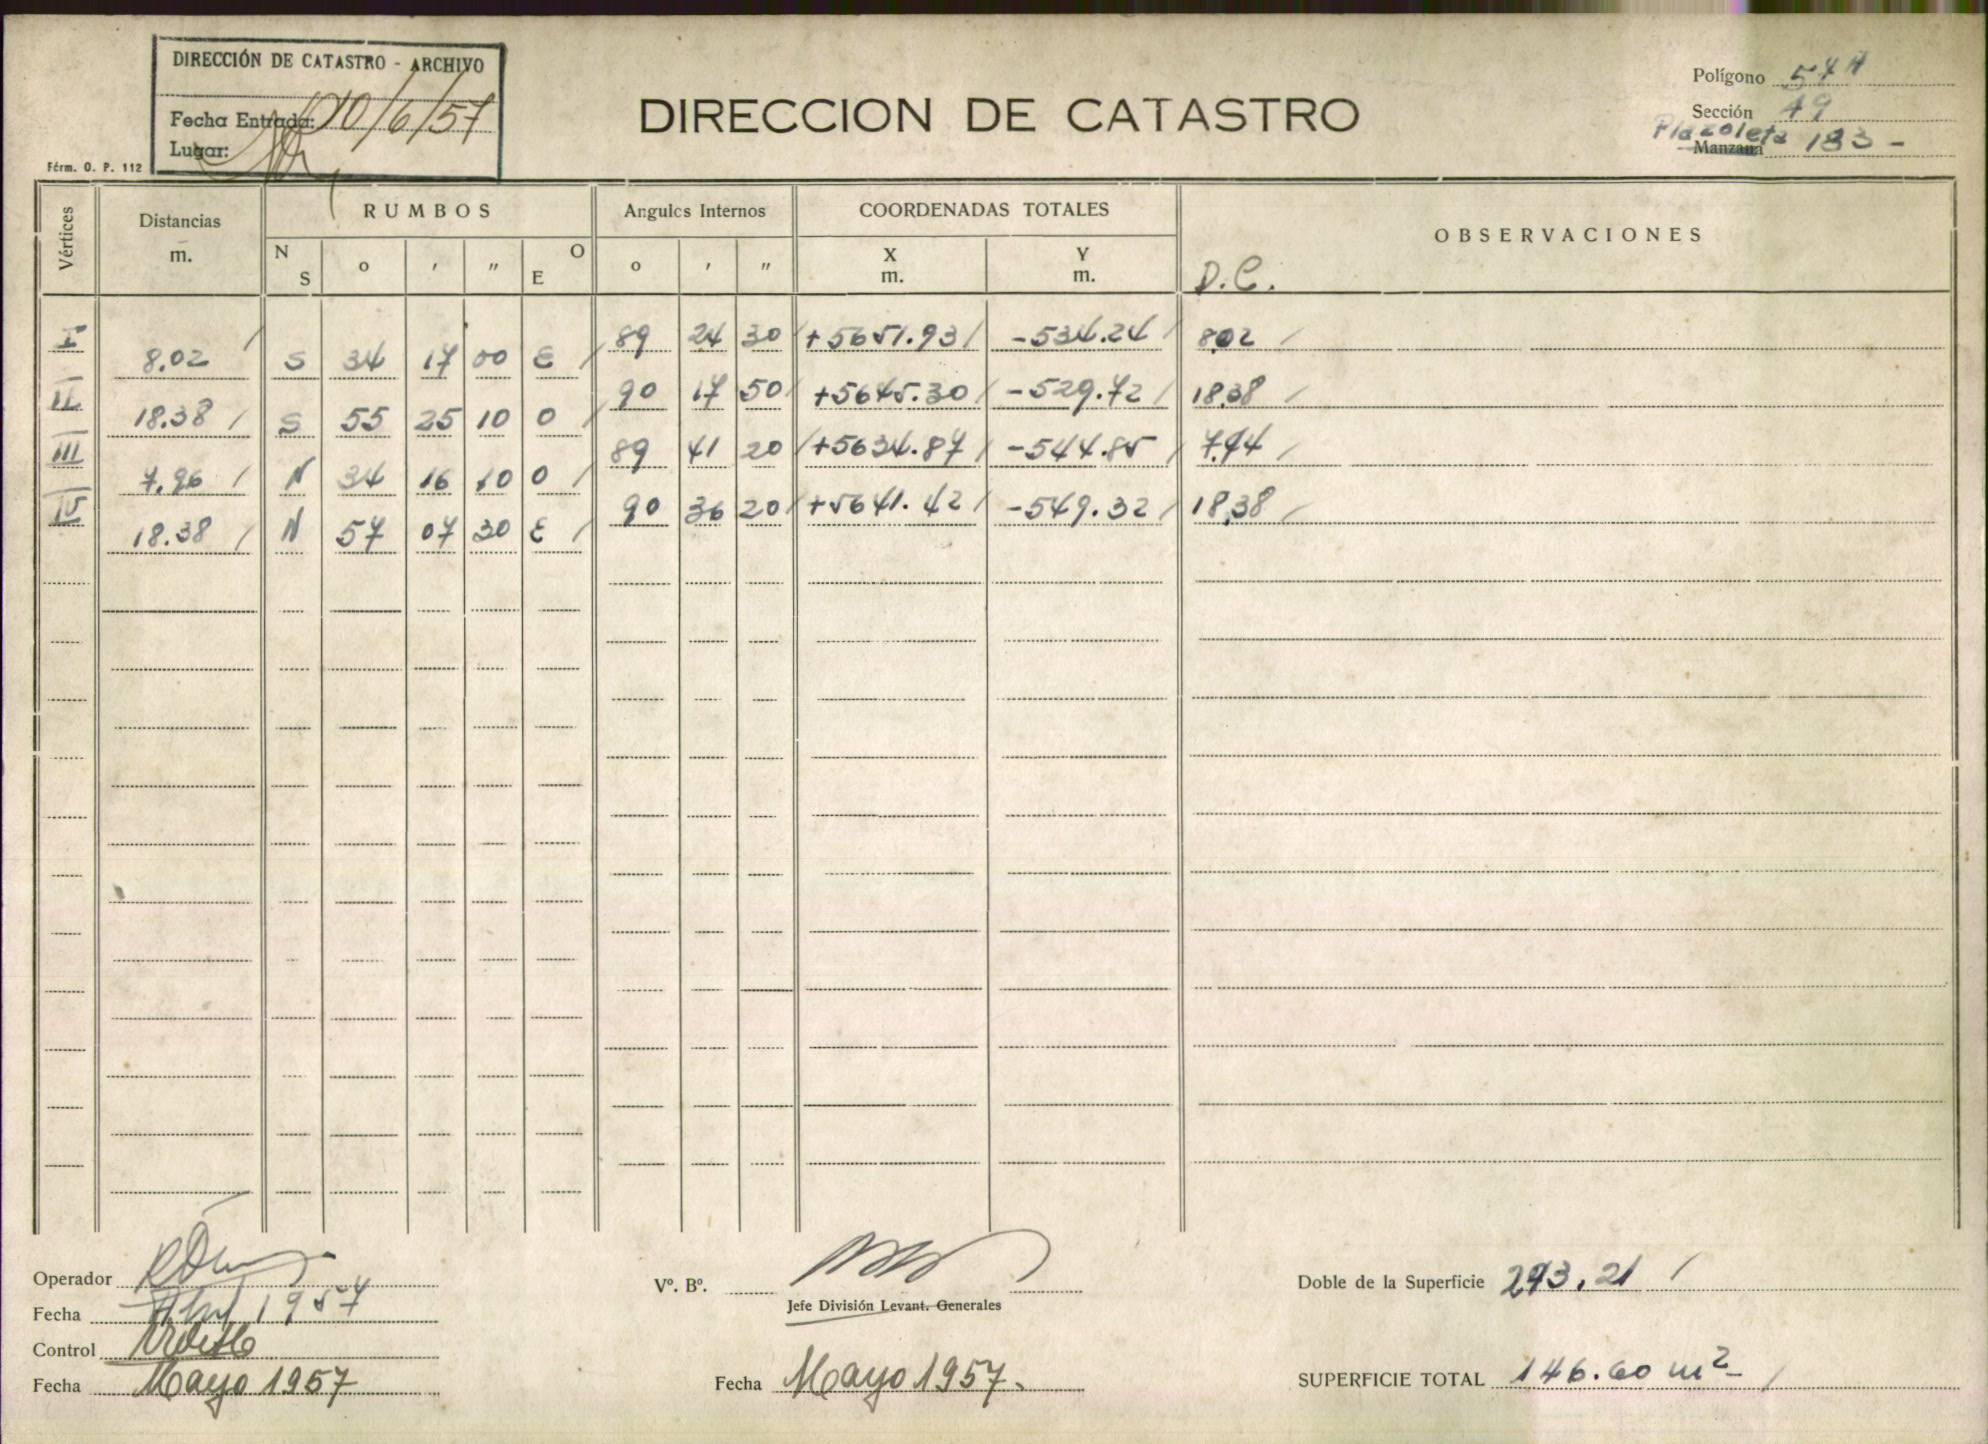 DIRECCIÓN DE CATASTRO - ARCHIVO
Fecha Entrada: 10/6/57
Lugar:
Férm. O. P. 112
DIRECCION DE CATASTRO
Polígono 57 A
Sección 49
Plazoleta
Manzana 183 -
Vértices
Distancias
m.
RUMBOS
N
S
o
'
"
O
E
Angulos Internos
o
'
"
COORDENADAS TOTALES
X
m.
Y
m.
OBSERVACIONES
D.C.
I 89 24 30 +5651.93 -534.24 8.02
8.02 S 34 17 00 E
II 90 17 50 +5645.30 -529.72 18.38
18.38 S 55 25 10 O
III 89 41 20 +5634.87 -544.85 7.94
7.96 N 34 16 10 O
IV 90 36 20 +5641.42 -549.32 18.38
18.38 N 57 07 30 E
Operador
Fecha Abril 1957
Control
Fecha Mayo 1957
Vº. Bº.
Jefe División Levant. Generales
Fecha Mayo 1957.
Doble de la Superficie 293.21
SUPERFICIE TOTAL 146.60 m2